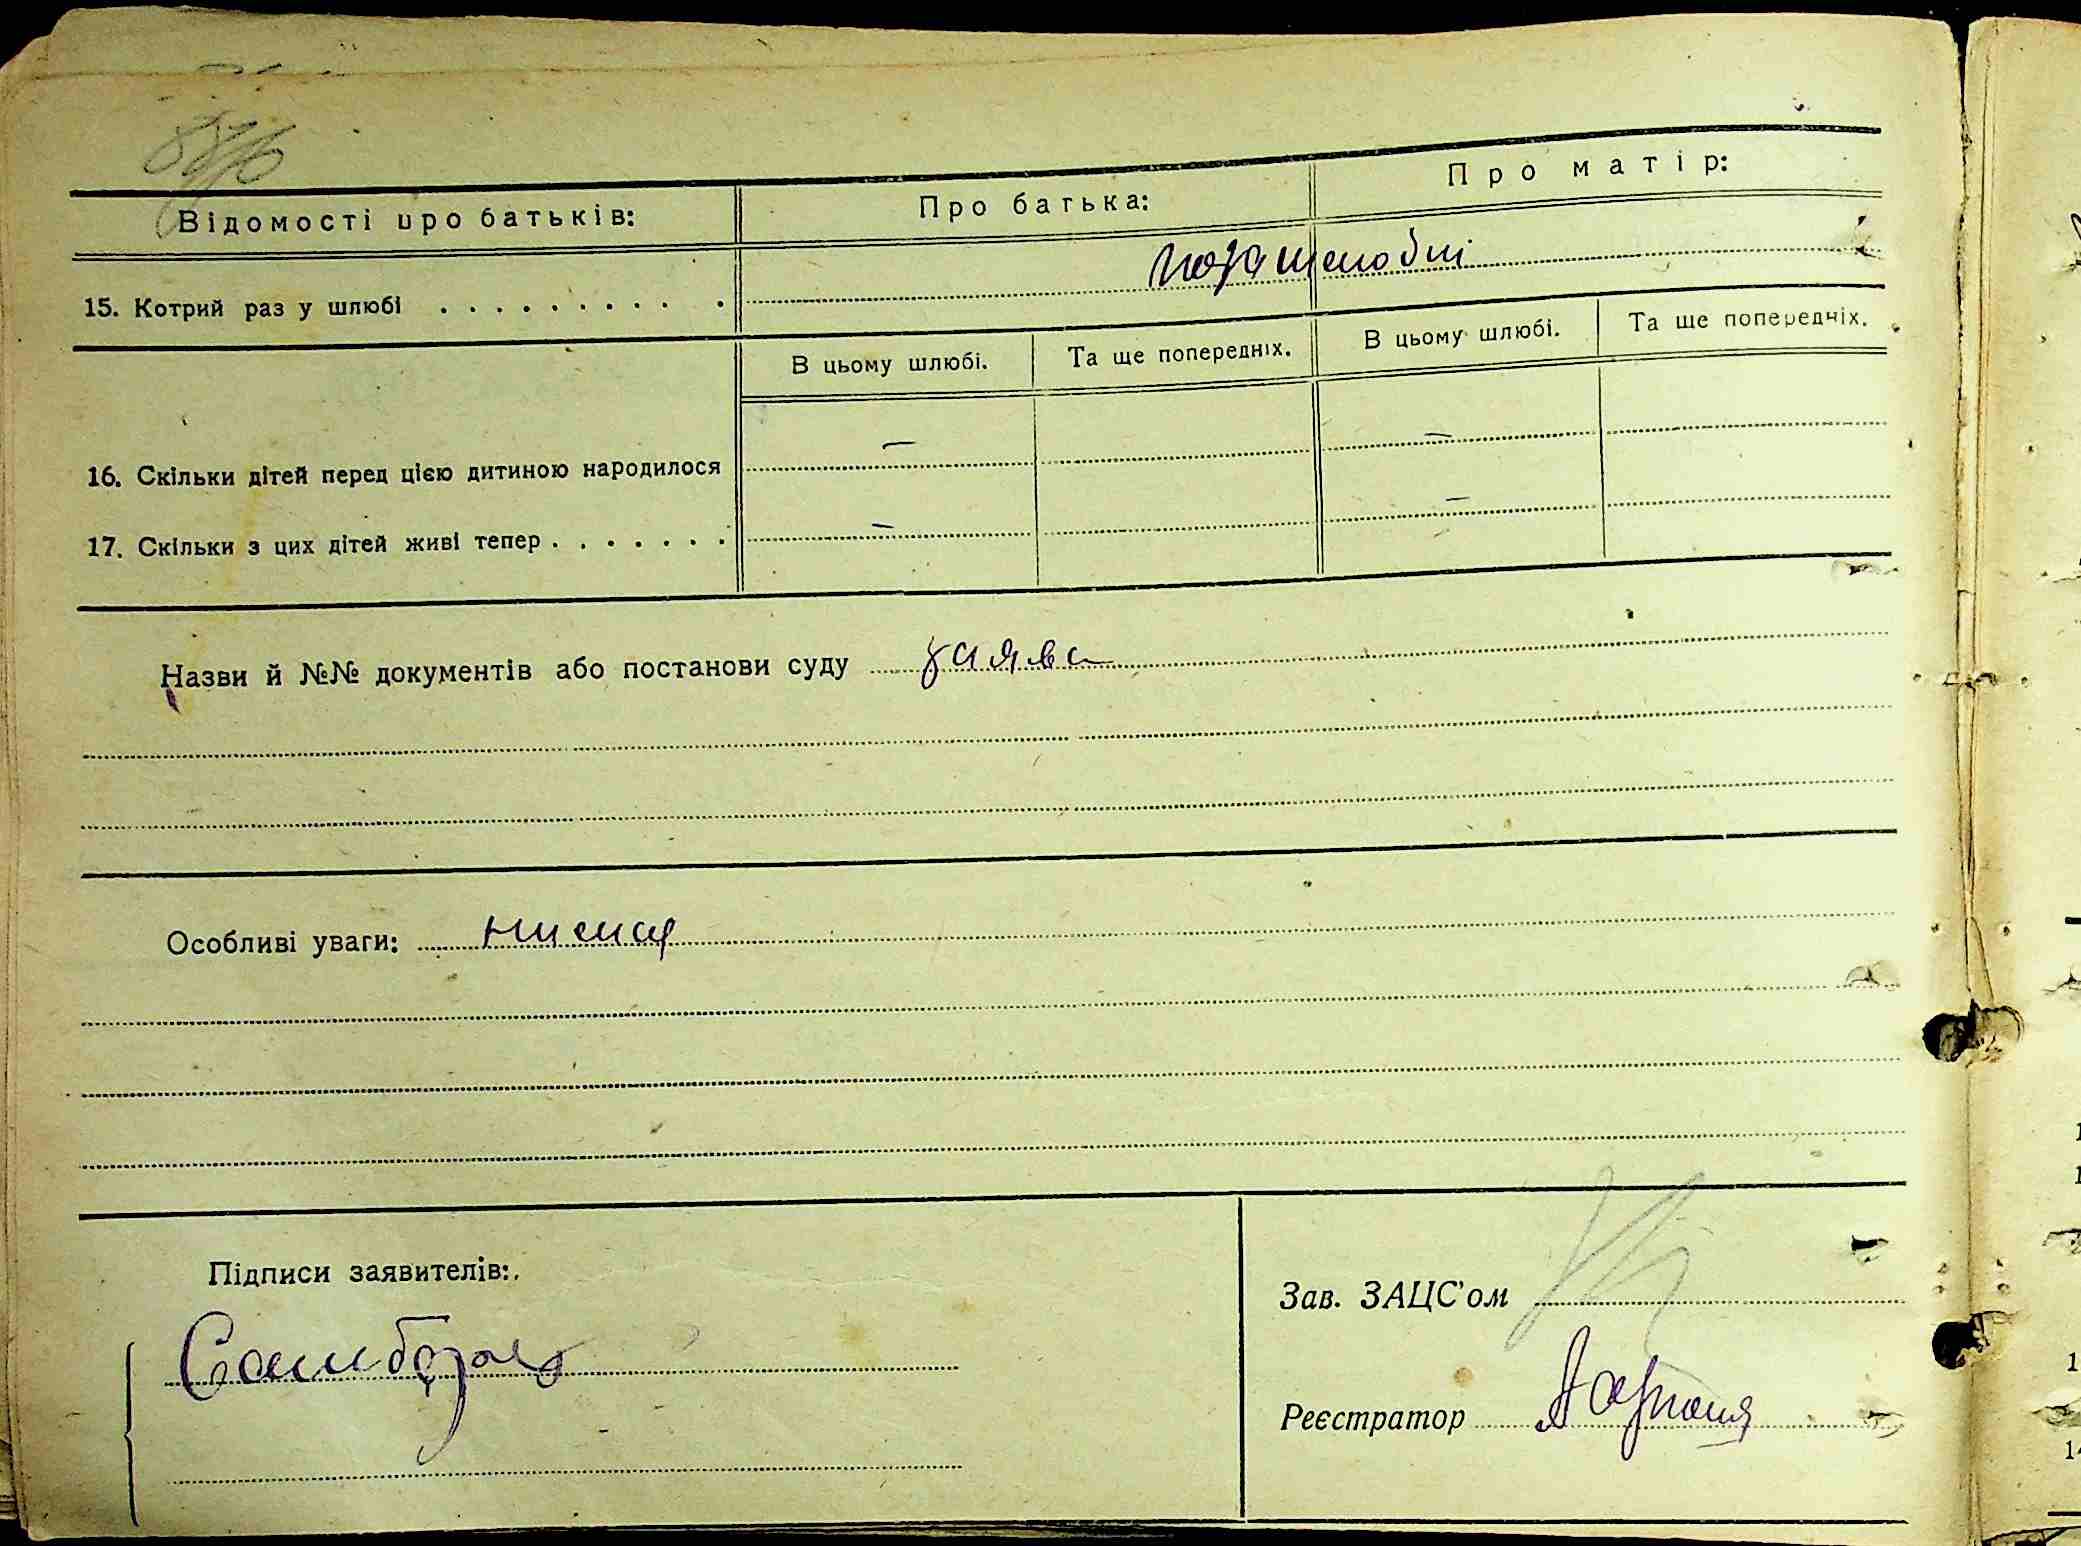 Відомості про батьків:
Про батька:
Про матір:
15. Котрий раз у шлюбі . . . . . . . . . .
позашлюбні
В цьому шлюбі. Та ще попередніх. В цьому шлюбі. Та ще попередніх.
16. Скільки дітей перед цією дитиною народилося — —
17. Скільки з цих дітей живі тепер . . . . . . . — —
Назви й №№ документів або постанови суду заява
Особливі уваги: немає
Підписи заявителів:
Зав. ЗАЦС'ом
Реєстратор
1
1
1
14